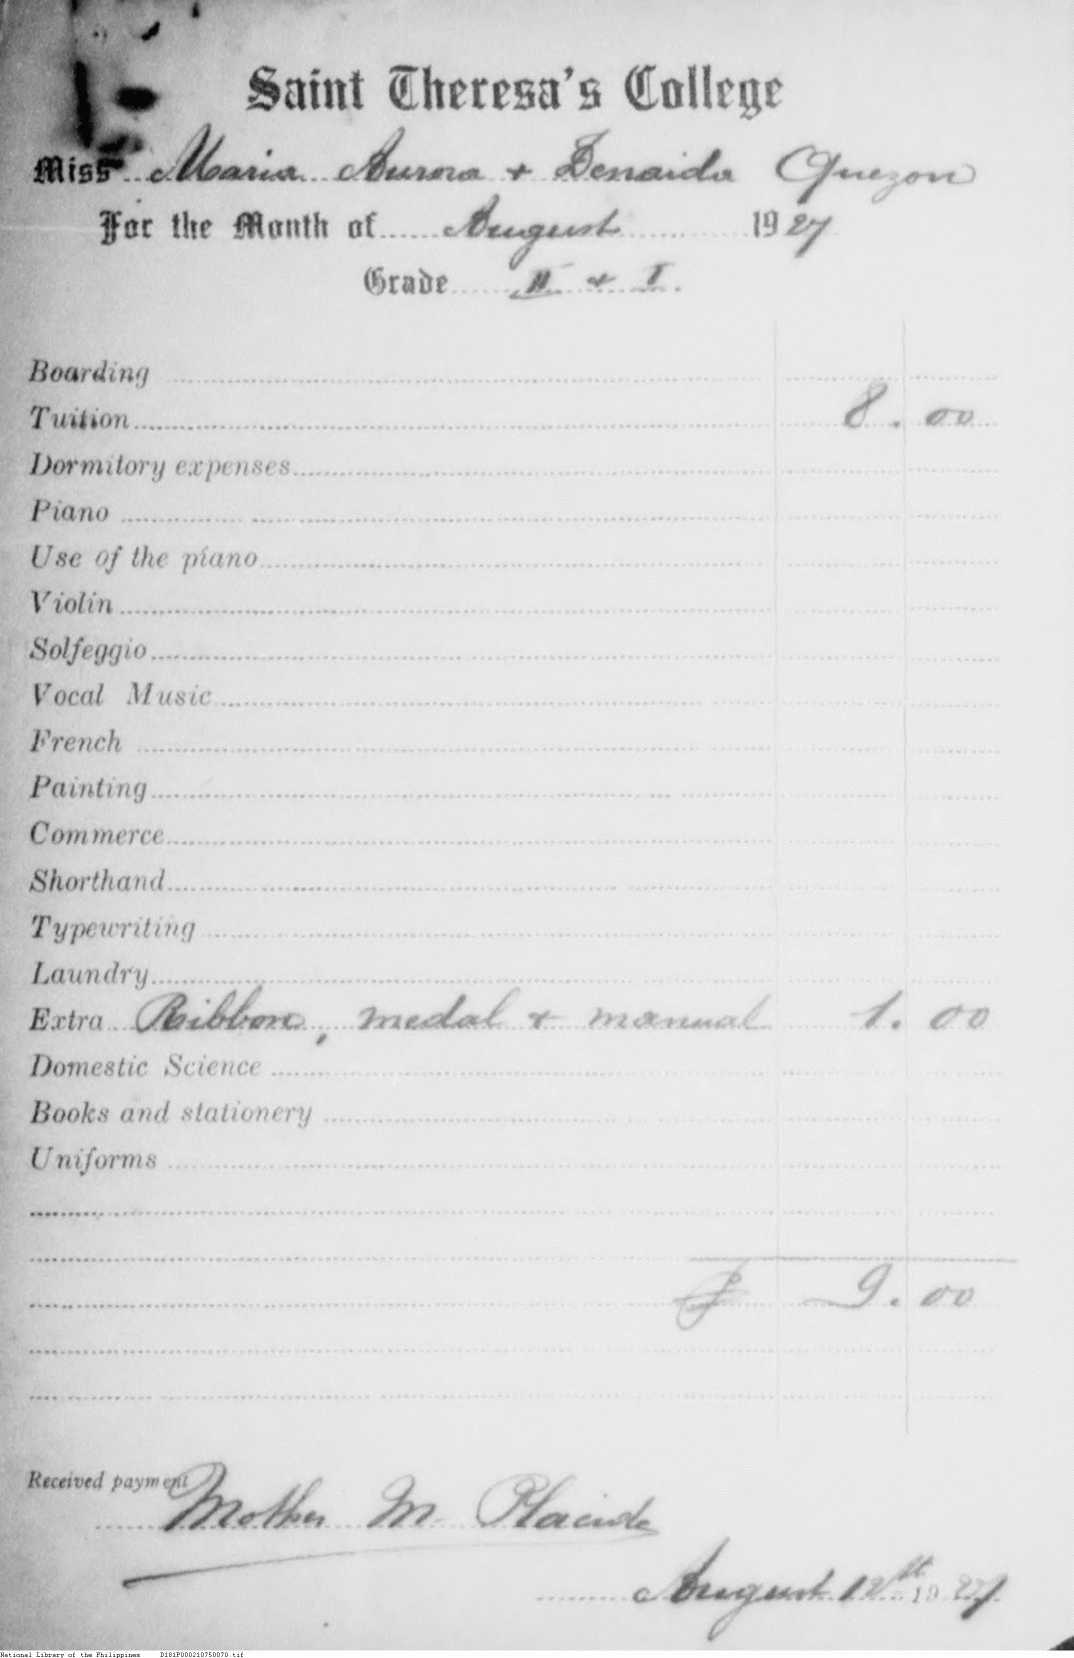 Saint Theresa's College
Miss Maria Aurora + Zenaida Quezon
For the Month of August 1927
Grade II + I.
Boarding
Tuition 8.00
Dormitory expenses
Piano
Use of the piano
Violin
Solfeggio
Vocal Music
French
Painting
Commerce
Shorthand
Typewriting
Laundry
Extra Ribbon, medal + manual 1.00
Domestic Science
Books and stationery
Uniforms
₱ 9.00
Received payment
Mother M. Placide
August 12th 1927
National Library of the Philippines D181P000210750070.tif